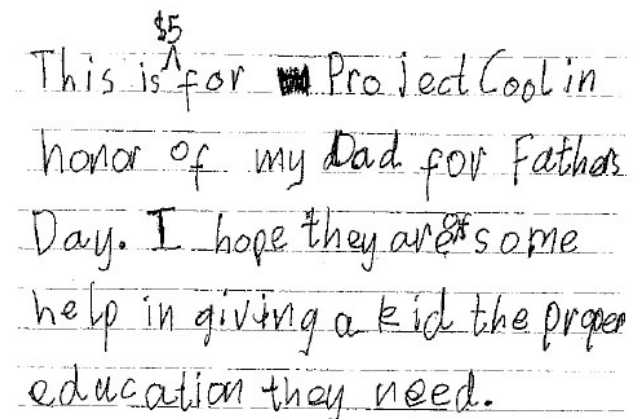 This is $5 for Project Cool in
honor of my Dad for Fathers
Day. I hope they are of some
help in giving a kid the proper
education they need.